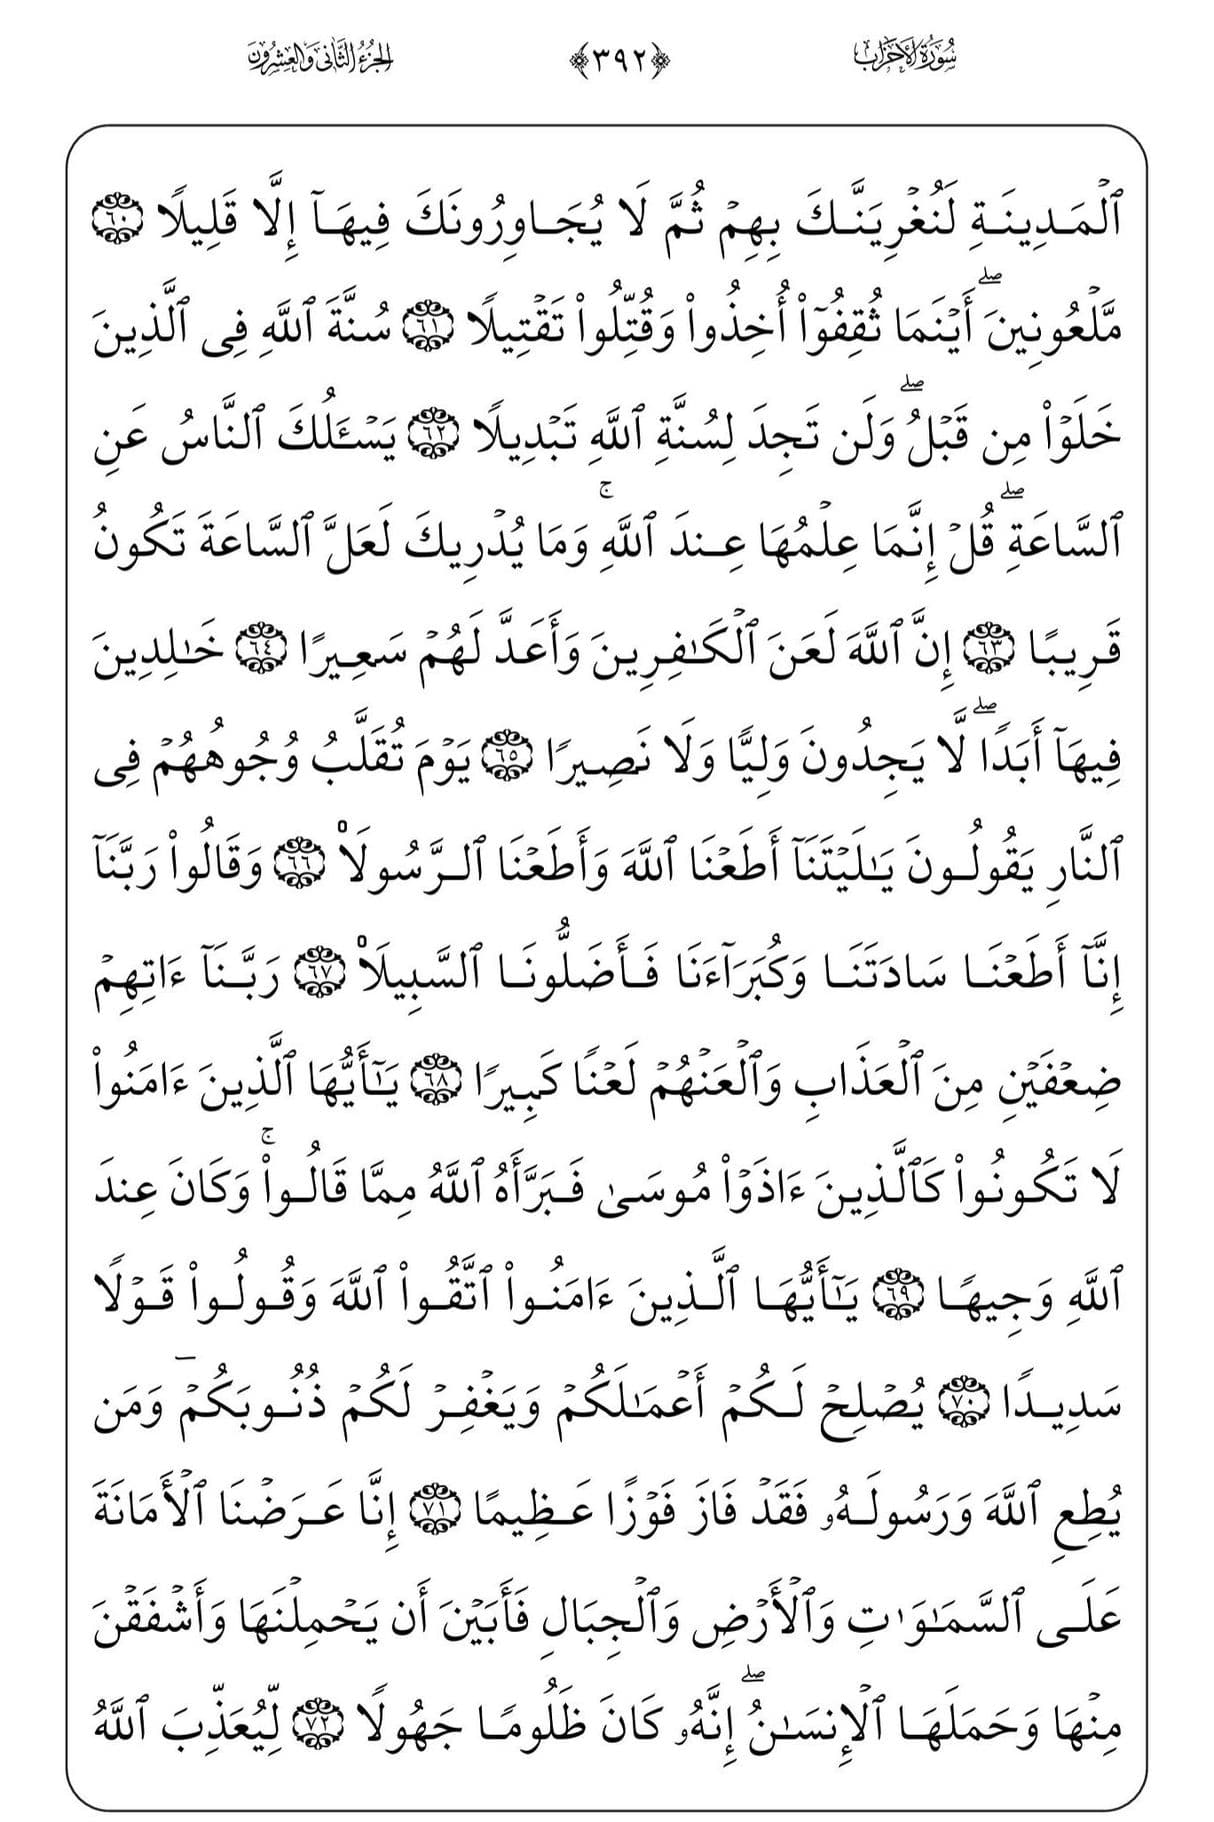 سُورَةُ الأَحْزَابِ ﴿٣٩٢﴾ الجُزْءُ الثَّانِي وَالعِشْرُونَ
ٱلۡمَدِينَةِ لَنُغۡرِيَنَّكَ بِهِمۡ ثُمَّ لَا يُجَاوِرُونَكَ فِيهَآ إِلَّا قَلِيلًا ٦٠
مَّلۡعُونِينَۖ أَيۡنَمَا ثُقِفُوٓاْ أُخِذُواْ وَقُتِّلُواْ تَقۡتِيلًا ٦١ سُنَّةَ ٱللَّهِ فِى ٱلَّذِينَ
خَلَوۡاْ مِن قَبۡلُۖ وَلَن تَجِدَ لِسُنَّةِ ٱللَّهِ تَبۡدِيلًا ٦٢ يَسۡـَٔلُكَ ٱلنَّاسُ عَنِ
ٱلسَّاعَةِۖ قُلۡ إِنَّمَا عِلۡمُهَا عِندَ ٱللَّهِۚ وَمَا يُدۡرِيكَ لَعَلَّ ٱلسَّاعَةَ تَكُونُ
قَرِيبًا ٦٣ إِنَّ ٱللَّهَ لَعَنَ ٱلۡكَٰفِرِينَ وَأَعَدَّ لَهُمۡ سَعِيرًا ٦٤ خَٰلِدِينَ
فِيهَآ أَبَدًاۖ لَّا يَجِدُونَ وَلِيًّا وَلَا نَصِيرًا ٦٥ يَوۡمَ تُقَلَّبُ وُجُوهُهُمۡ فِى
ٱلنَّارِ يَقُولُونَ يَٰلَيۡتَنَآ أَطَعۡنَا ٱللَّهَ وَأَطَعۡنَا ٱلرَّسُولَا۠ ٦٦ وَقَالُواْ رَبَّنَآ
إِنَّآ أَطَعۡنَا سَادَتَنَا وَكُبَرَآءَنَا فَأَضَلُّونَا ٱلسَّبِيلَا۠ ٦٧ رَبَّنَآ ءَاتِهِمۡ
ضِعۡفَيۡنِ مِنَ ٱلۡعَذَابِ وَٱلۡعَنۡهُمۡ لَعۡنًا كَبِيرًا ٦٨ يَٰٓأَيُّهَا ٱلَّذِينَ ءَامَنُواْ
لَا تَكُونُواْ كَٱلَّذِينَ ءَاذَوۡاْ مُوسَىٰ فَبَرَّأَهُ ٱللَّهُ مِمَّا قَالُواْۚ وَكَانَ عِندَ
ٱللَّهِ وَجِيهًا ٦٩ يَٰٓأَيُّهَا ٱلَّذِينَ ءَامَنُواْ ٱتَّقُواْ ٱللَّهَ وَقُولُواْ قَوۡلًا
سَدِيدًا ٧٠ يُصۡلِحۡ لَكُمۡ أَعۡمَٰلَكُمۡ وَيَغۡفِرۡ لَكُمۡ ذُنُوبَكُمۡ وَمَن
يُطِعِ ٱللَّهَ وَرَسُولَهُۥ فَقَدۡ فَازَ فَوۡزًا عَظِيمًا ٧١ إِنَّا عَرَضۡنَا ٱلۡأَمَانَةَ
عَلَى ٱلسَّمَٰوَٰتِ وَٱلۡأَرۡضِ وَٱلۡجِبَالِ فَأَبَيۡنَ أَن يَحۡمِلۡنَهَا وَأَشۡفَقۡنَ
مِنۡهَا وَحَمَلَهَا ٱلۡإِنسَٰنُۖ إِنَّهُۥ كَانَ ظَلُومًا جَهُولًا ٧٢ لِّيُعَذِّبَ ٱللَّهُ